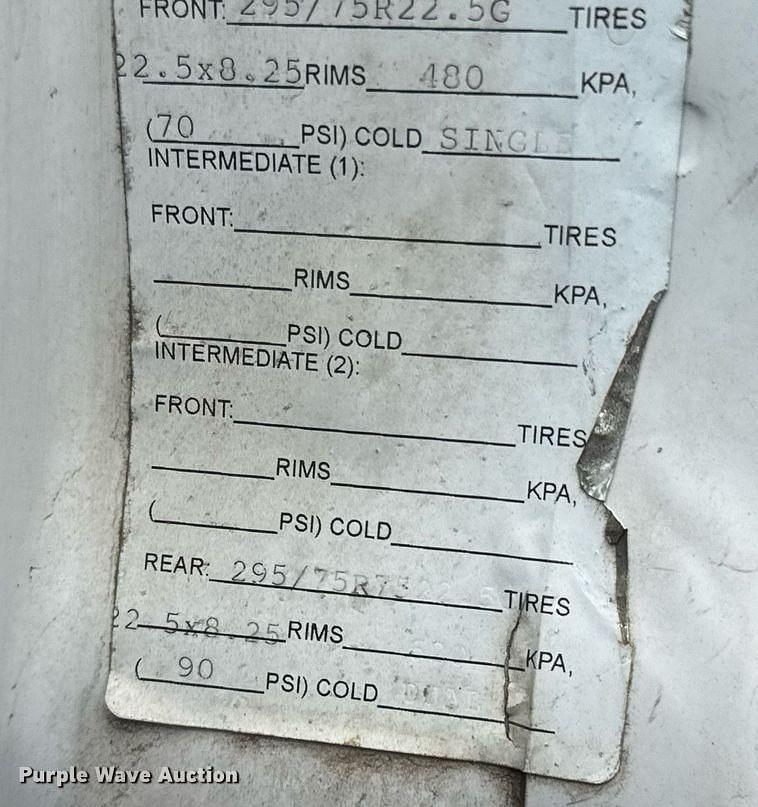 FRONT: 295/75R22.5G TIRES
22.5x8.25 RIMS 480 KPA,
(70 PSI) COLD SINGLE
INTERMEDIATE (1):
FRONT: TIRES
RIMS KPA,
( PSI) COLD
INTERMEDIATE (2):
FRONT: TIRES
RIMS KPA,
( PSI) COLD
REAR: 295/75R TIRES
22.5x8.25 RIMS KPA,
( 90 PSI) COLD
Purple Wave Auction